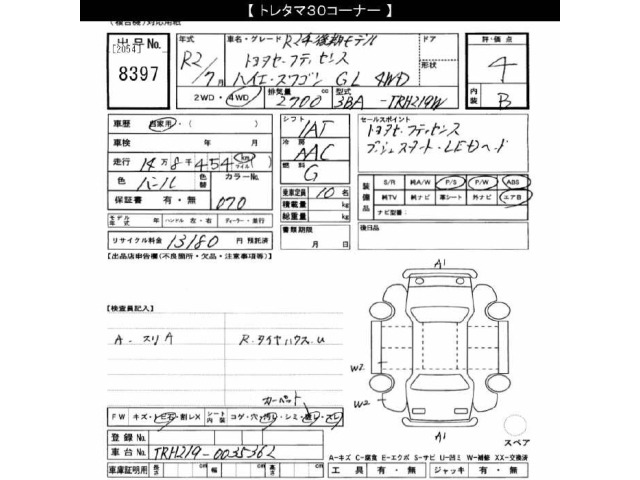 【 トレタマ30コーナー 】
(複合機)対応用紙
出品No.
[2054]
8397
年式
R2/7月
車名・グレード R2年後期モデル
トヨタセーフティセンス
ハイエースワゴン GL 4WD
ドア
形状
評・価・点
4
内装
B
2WD・4WD
排気量
2700
cc
型式
3BA-TRH219W
車歴
自家用・(    )
車検 年 月
走行 14万8千454 km マイル
色 パール
色替
カラーNo.
070
保証書 有・無
シフト
IAT
冷房
AAC
燃料
G
乗車定員 10 名
積載量 kg
総重量 kg
セールスポイント
トヨタセーフティセンス
プッシュスタート・LEDヘッド
装備品
S/R 純A/W P/S P/W ABS
純TV 純ナビ 革シート 外ナビ エアB
ナビ型番:
モデル年式 年 ハンドル 左・右 ディーラー・並行
リサイクル料金 13180 円 預託済
書類期限
月 日
後日品
【出品店申告欄(不良箇所・欠品・注意事項等)】
【検査員記入】
A-スリA
R-タイヤハウスU
カーペット
A1
W2
W2
A1
FW キズ・トビ石・割レX シート内装 コゲ・穴・汚レ・シミ・破レ・スレ
登録No.
車台No. TRH219-0035362
スペア
A-キズ C-腐食 E-エクボ S-サビ U-凹ミ W-補修 XX-交換済
車庫証明用 長さ cm 幅 cm 高さ cm
工具 有・無 ジャッキ 有・無